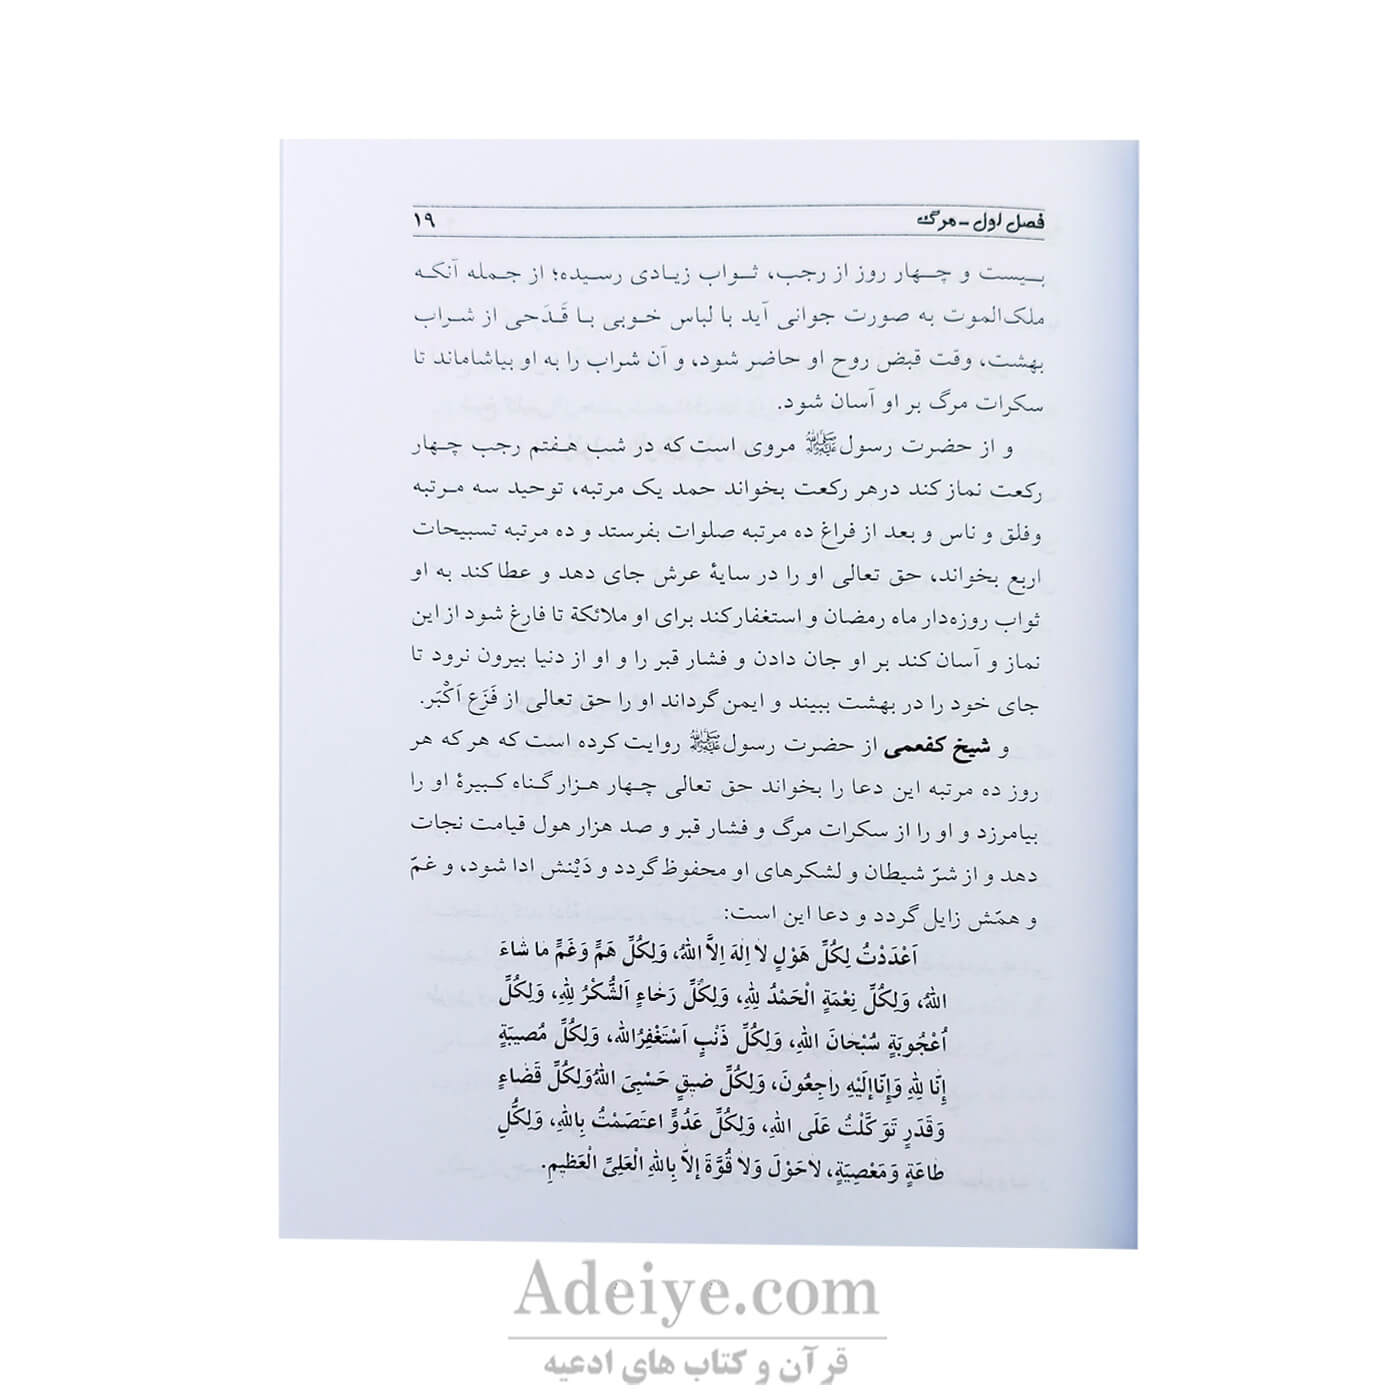 فصل اول - مرگ ۱۹
بیست و چهار روز از رجب، ثواب زیادی رسیده؛ از جمله آنکه
ملک‌الموت به صورت جوانی آید با لباس خوبی با قَدَحی از شراب
بهشت، وقت قبض روح او حاضر شود، و آن شراب را به او بیاشاماند تا
سکرات مرگ بر او آسان شود.
و از حضرت رسول ﷺ مروی است که در شب هفتم رجب چهار
رکعت نماز کند درهر رکعت بخواند حمد یک مرتبه، توحید سه مرتبه
وفلق و ناس و بعد از فراغ ده مرتبه صلوات بفرستد و ده مرتبه تسبیحات
اربع بخواند، حق تعالی او را در سایهٔ عرش جای دهد و عطا کند به او
ثواب روزه‌دار ماه رمضان و استغفار کند برای او ملائکة تا فارغ شود از این
نماز و آسان کند بر او جان دادن و فشار قبر را و او از دنیا بیرون نرود تا
جای خود را در بهشت ببیند و ایمن گرداند او را حق تعالی از فَزَع اَکْبَر.
و شیخ کفعمی از حضرت رسول ﷺ روایت کرده است که هر که هر
روز ده مرتبه این دعا را بخواند حق تعالی چهار هزار گناه کبیرهٔ او را
بیامرزد و او را از سکرات مرگ و فشار قبر و صد هزار هول قیامت نجات
دهد و از شرّ شیطان و لشکرهای او محفوظ گردد و دَیْنش ادا شود، و غمّ
و همّش زایل گردد و دعا این است:
اَعْدَدْتُ لِکُلِّ هَوْلٍ لا اِلٰهَ اِلَّا اللهُ، وَلِکُلِّ هَمٍّ وَغَمٍّ ما شاءَ
اللهُ، وَلِکُلِّ نِعْمَةٍ الْحَمْدُ لِلّٰهِ، وَلِکُلِّ رَخاءٍ اَلشُّکْرُ لِلّٰهِ، وَلِکُلِّ
اُعْجُوبَةٍ سُبْحانَ اللهِ، وَلِکُلِّ ذَنْبٍ اَسْتَغْفِرُ الله، وَلِکُلِّ مُصیبَةٍ
إِنَّا لِلّٰهِ وَإِنَّا إلَیْهِ راجِعُونَ، وَلِکُلِّ ضیقٍ حَسْبِیَ اللهُ وَلِکُلِّ قَضاءٍ
وَقَدَرٍ تَوَکَّلْتُ عَلَی اللهِ، وَلِکُلِّ عَدُوٍّ اعتَصَمْتُ بِاللهِ، وَلِکُلِّ
طاعَةٍ وَمَعْصِیَةٍ، لاحَوْلَ وَلا قُوَّةَ إلَّا بِاللهِ الْعَلِیِّ الْعَظیمِ.
Adeiye.com
قرآن و کتاب های ادعیه